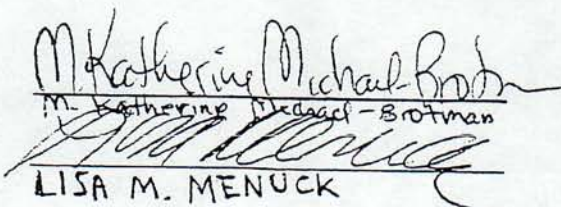 M. Katherine Michael-Brotman
M. Katherine Michael-Brotman
Lisa Menuck
LISA M. MENUCK